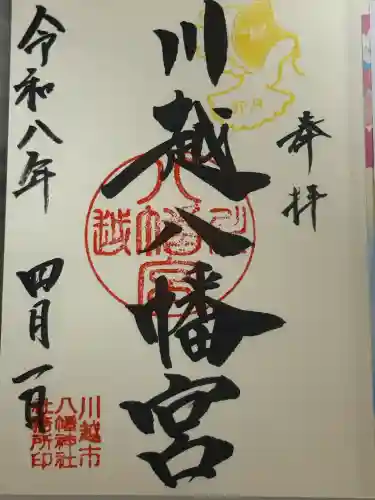 奉拝
川越八幡宮
令和八年 四月一日
川越
八幡宮
川越市
八幡神社
社務所印